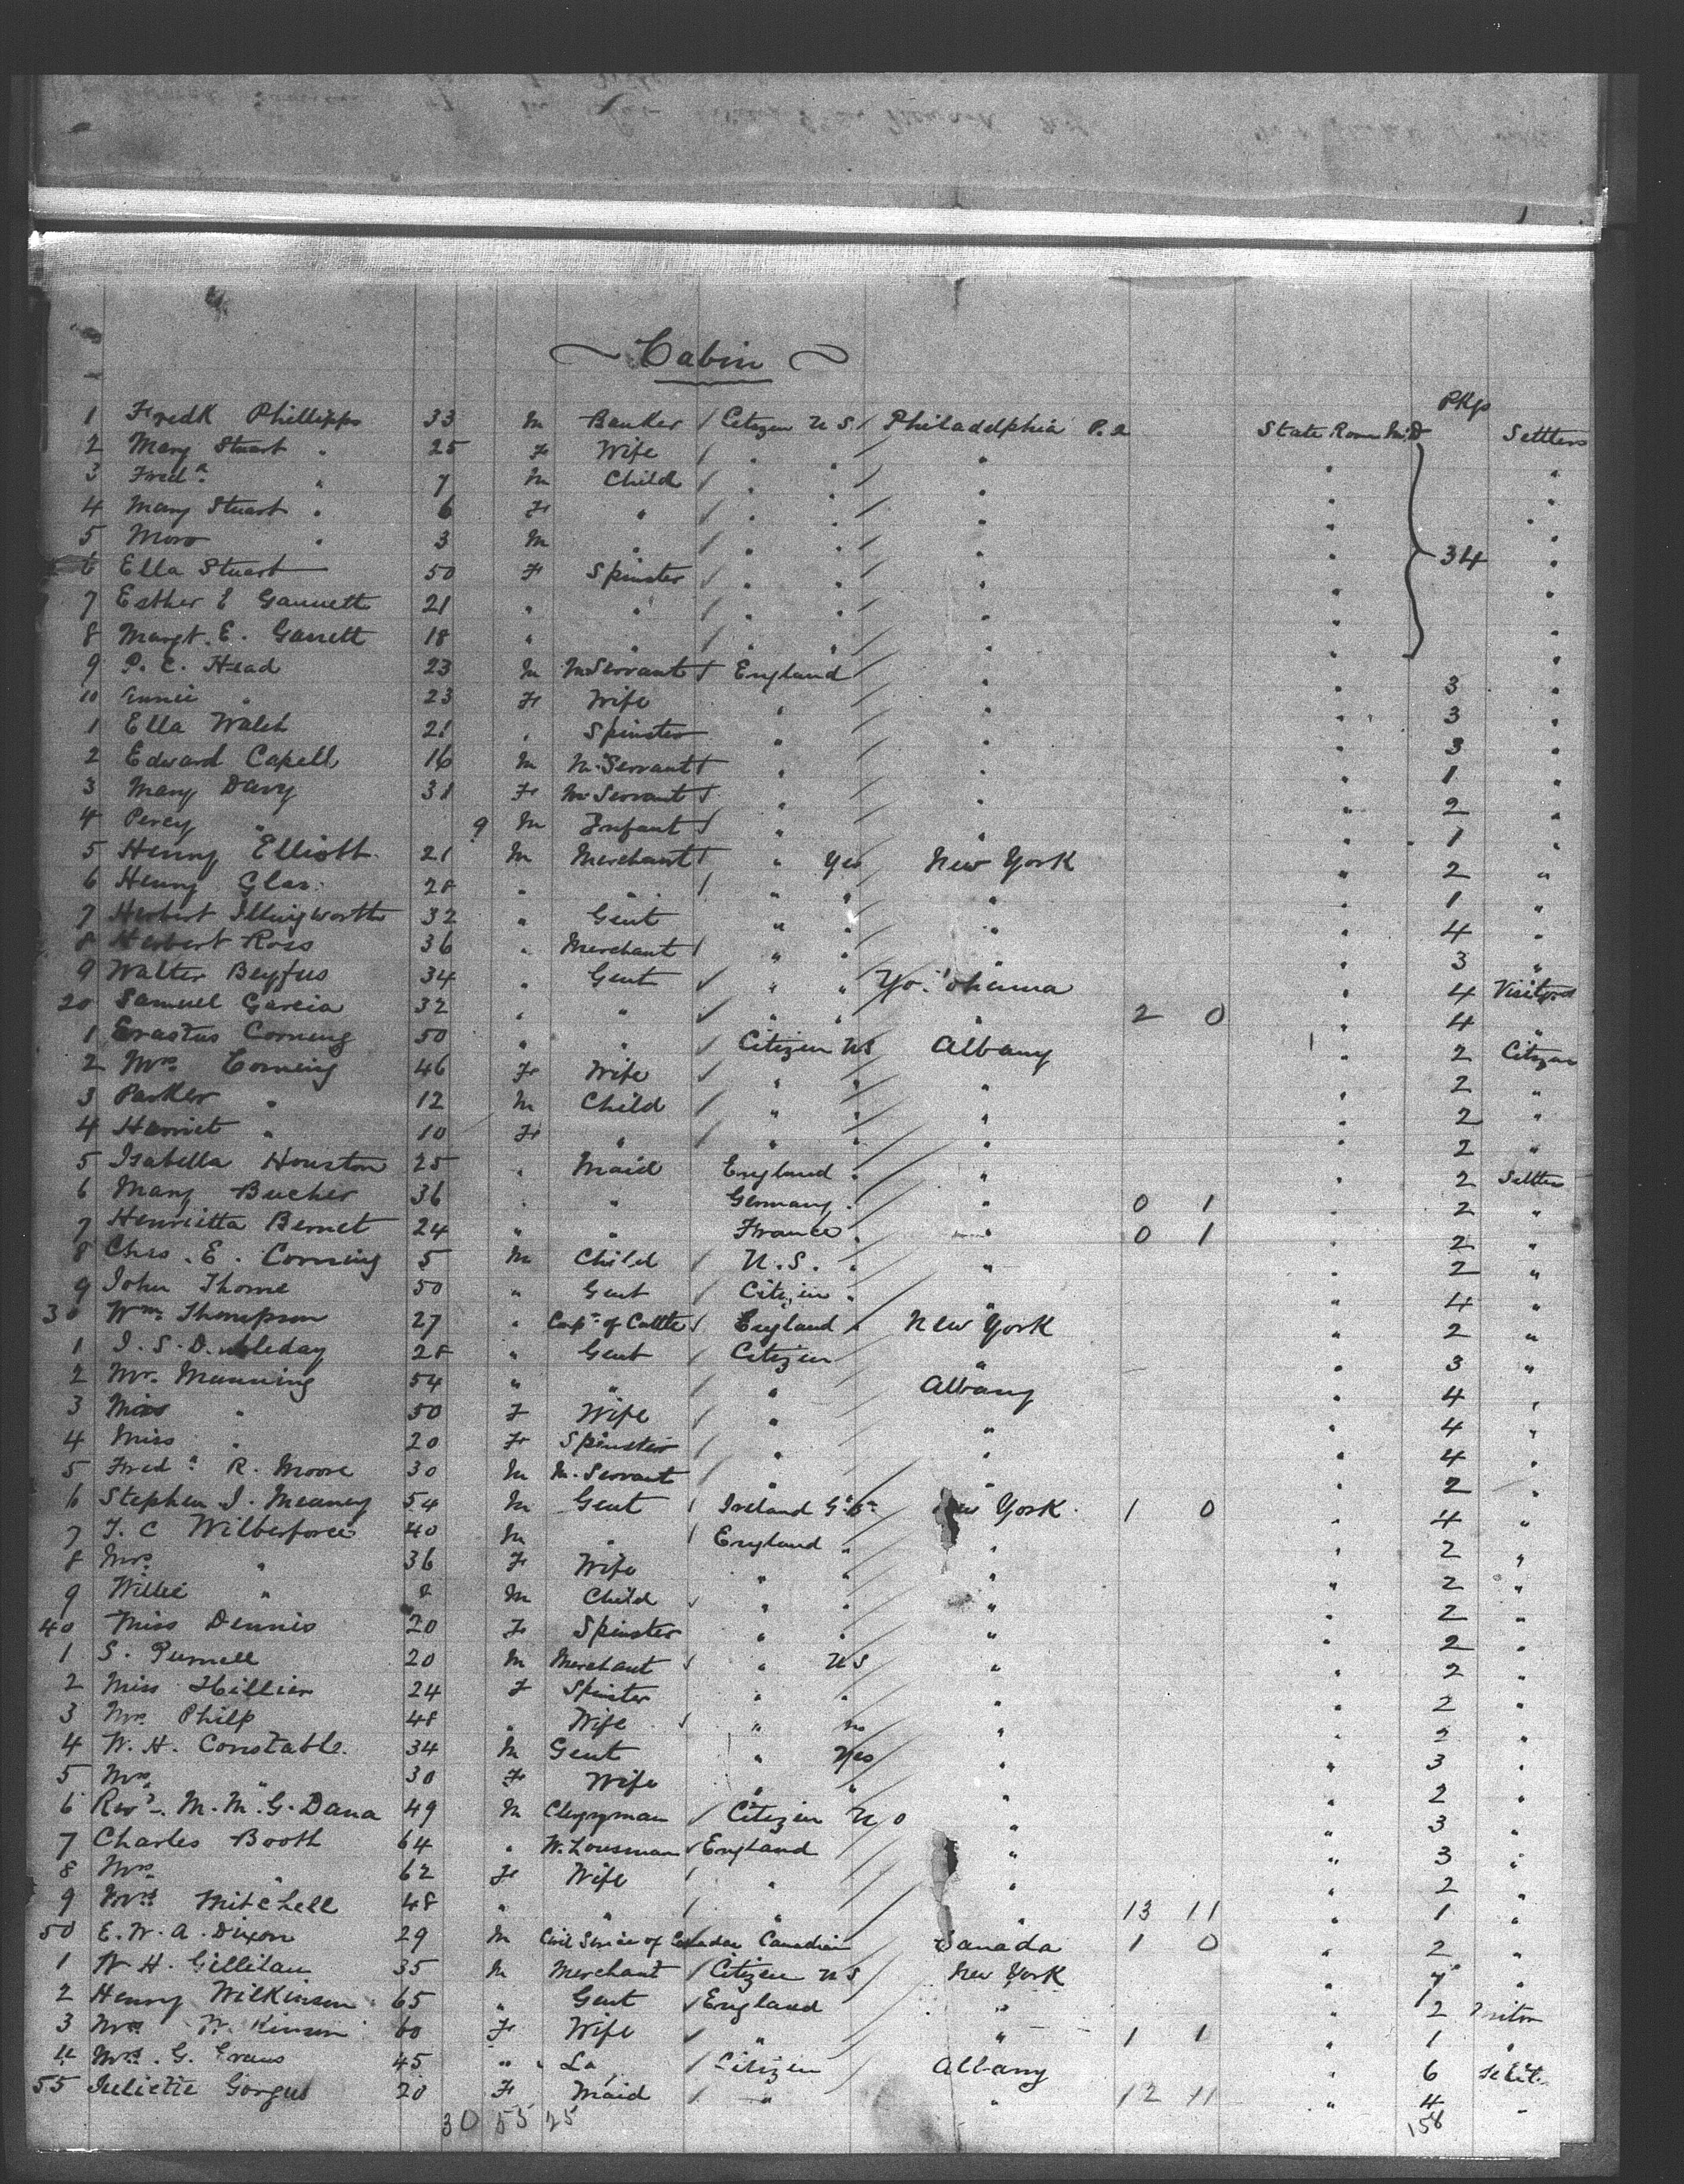 Cabin
Pkgs
1 Fredk Phillipps 33 M Banker / Citizen U S / Philadelphia Pa State Room Mid Settlers
2 Mary Stuart " 25 F Wife / " " "
3 Fred " 7 M Child / " " "
4 Mary Stuart " 6 F " / " " "
5 Moro " 3 M " / " " " 34
6 Ella Stuart 50 F Spinster / " " "
7 Esther E Gannett 21 " " / " " "
8 Margt. E. Garrett 18 " " / " " "
9 P. C. Head 23 M M Servant England " " 3 "
10 Annie " 23 F Wife " " " 3 "
1 Ella Walsh 21 " Spinster " " " 3 "
2 Edward Capell 16 M M. Servant " " " 1 "
3 Mary Davy 31 F Servant " " " 2 "
4 Percy " 9 M Infant " " " 1 "
5 Henry Elliott 21 M Merchant " Yes New York " 2 "
6 Henry Glas. 28 " " / " " " " 1 "
7 Herbert Illingworth 32 " Gent " " " " 4 "
8 Herbert Ross 36 " Merchant " " " " 3 "
9 Walter Beyfus 34 " Gent / " " Yo. ohama " 4 Visitors
20 Samuel Garcia 32 " " / " " " 2 0 " 4 "
1 Erastus Corning 50 " " / Citizen US Albany " 2 Citizen
2 Mrs Corning 46 F Wife / " " " " 2 "
3 Parker " 12 M Child / " " " " 2 "
4 Harriet " 10 F " / " " " " 2 "
5 Isabella Houston 25 " Maid England " " " 2 Settler
6 Mary Bucher 36 " " Germany " " 0 1 " 2 "
7 Henrietta Bernet 24 " " France " " 0 1 " 2 "
8 Chas. E. Corning 5 M Child / U.S. " " 2 "
9 John Thorne 50 " Gent / Citizen " " " 4 "
30 Wm Thompson 27 " Capt of Cattle / England " New York " 2 "
1 J. S. Doubleday 28 " Gent / Citizen " " 3 "
2 Mr. Manning 54 " " / " Albany " 4 "
3 Mrs " 50 F Wife / " " " 4 "
4 Miss " 20 F Spinster / " " " 4 "
5 Fred R. Moore 30 M M. Servant / " " " 2 "
6 Stephen J. Meaney 54 M Gent / Ireland Gt Bn New York 1 0 " 4 "
7 T. C Wilberforce 40 M " / England " " " 2 "
8 Mrs " 36 F Wife " " " " 2 "
9 Willie " 8 M Child / " " " " 2 "
40 Miss Dennis 20 F Spinster " " " " 2 "
1 S. Purnell 20 M Merchant / " US " " 2 "
2 Miss Hillier 24 F Spinster " " " " 2 "
3 Mrs Philp 48 " Wife / " no " " 2 "
4 W. H. Constable. 34 M Gent " Yes " " 3 "
5 Mrs " 30 F Wife " " " " 2 "
6 Revd. M. M. G. Dana 49 M Clergyman / Citizen U " " 3 "
7 Charles Booth 64 " W. Housman / England " " 3 "
8 Mrs " 62 F Wife / " " " 2 "
9 Mrs Mitchell 48 " " / " " 13 11 " 1 "
50 E. W. A. Dixon 29 M Civil Service of Canada Canadian Canada 1 0 " 2 "
1 W H. Gillilan 35 M Merchant / Citizen US New York " 7 "
2 Henry Wilkinson 65 " Gent / England " " 2 Visitor
3 Mrs W. kinson 60 F Wife / " " 1 1 " 1 "
4 Mrs. G. Evans 45 " La, / Citizen Albany " 6
55 Juliette Gorgus 20 F Maid / " " 12 11 " 4 "
30 55 25 158